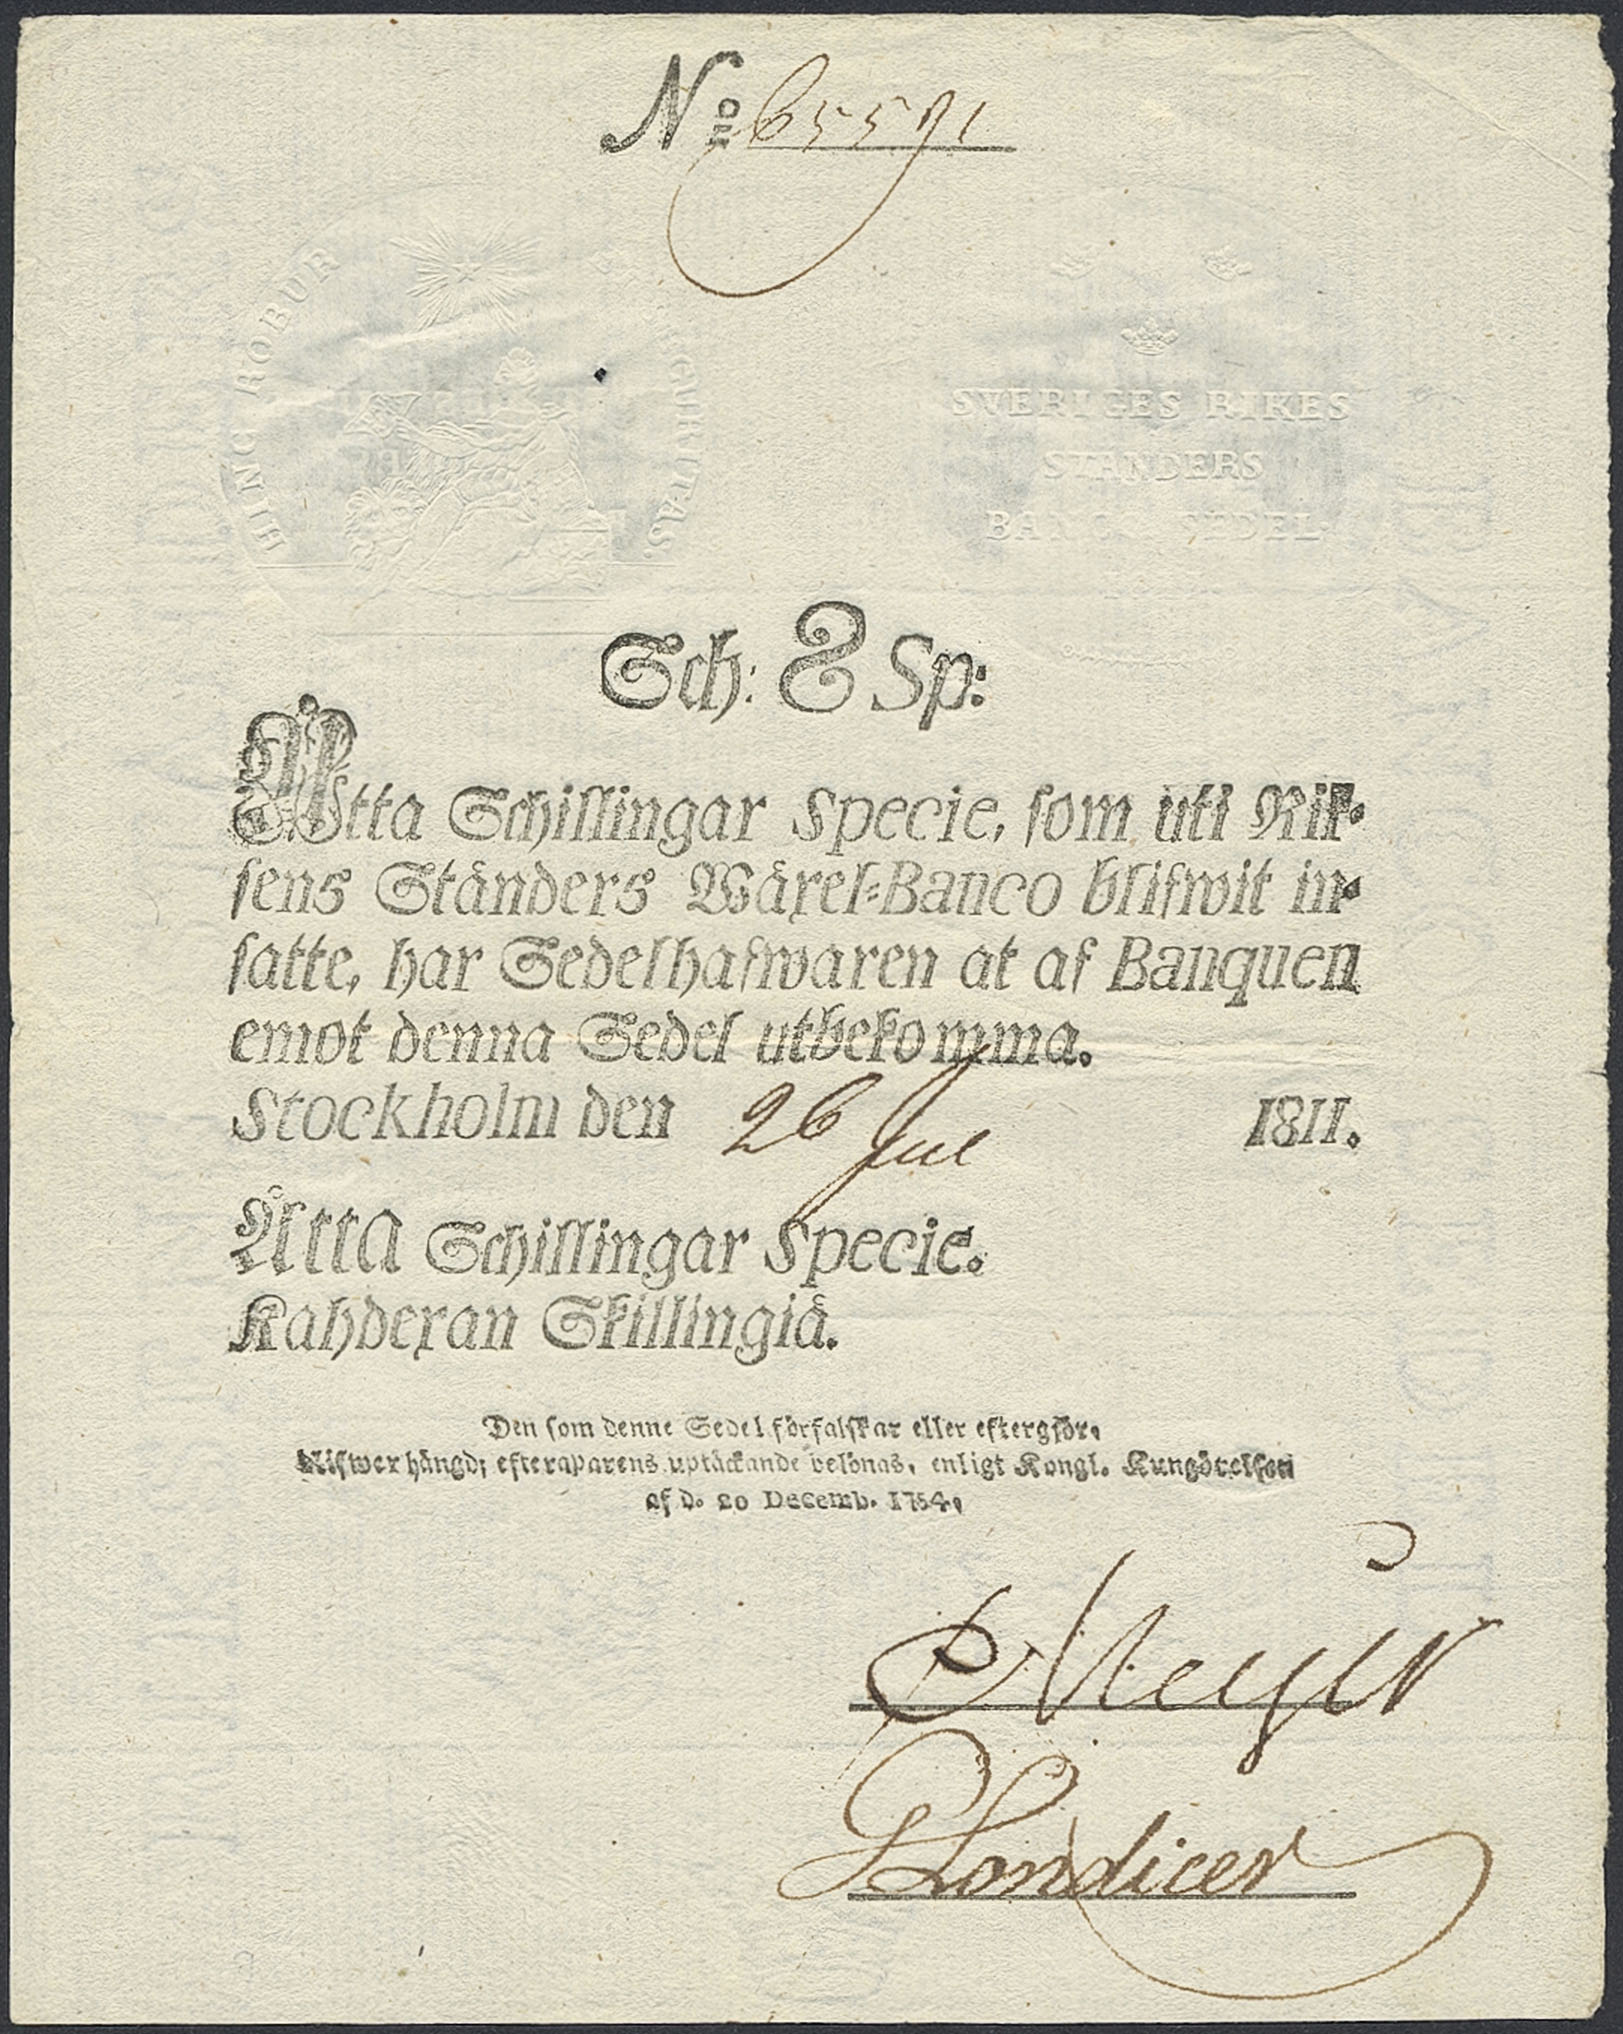 No 65591
HINC ROBUR
SECURITAS.
SVERIGES RIKES
STÄNDERS
BANCO SEDEL
Sch: 8 Sp:
Åtta Schillingar Specie, som uti Rik-
sens Ständers Wäxel-Banco blifwit in-
satte, har Sedelhafwaren at af Banquen
emot denna Sedel utbekomma.
Stockholm den 26 Jul 1811.
Åtta Schillingar Specie.
Kahdexan Skillingiä.
Den som denne Sedel förfalskar eller eftergjör,
blifwer hängd; efteraparens uptäckande belönas, enligt Kongl. Kungörelsen
af d. 20 Decemb. 1754,
Meyer
Londicer